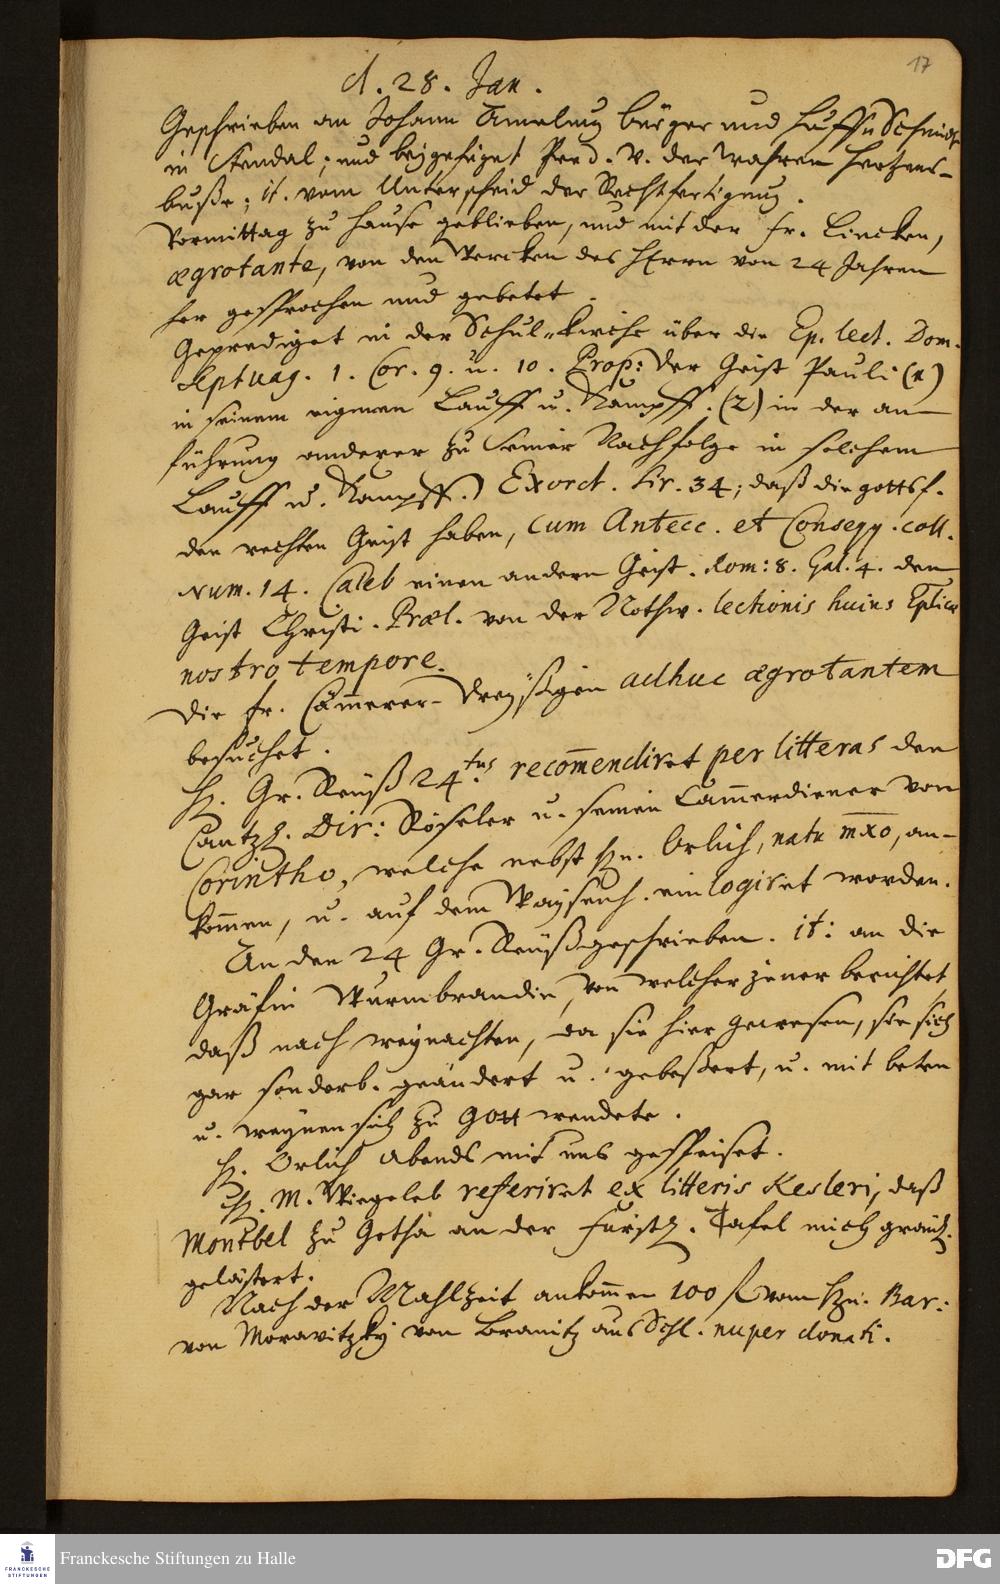 17
d. 28. Jan.
Geschrieben an Johann Amelung bürger und Huff u Schmidt
in Stendal; und beygefüget Pred. v. der wahren Hertzens-
buße; it. vom Unterscheid der Rechtfertigung.
Vormittag zu Hause geblieben, und mit der Fr. Lincken,
ægrotante, von den Wercken des HErrn von 24 Jahren
her gesprochen und gebetet.
Geprediget in der Schul-Kirche über die Ep. lect. Dom.
Septuag. 1. Cor. 9. u. 10. Prop: Der Geist Pauli (1)
in seinem eigenen Lauff u. Kampff. (2) in der an-
führung anderer zu seiner Nachfolge in solchem
Lauff u. Kampff.) Exord. Sir. 34; daß die gottsf.
den rechten Geist haben, cum Antecc. et Conseqq. coll.
Num. 14. Caleb einen andern Geist. Rom: 8. Gal. 4. den
Geist Christi. Præl. von der Nothw. lectionis huius Eplicæ
nostro tempore.
Die Fr. Cämmerer-Dreyßigin adhuc ægrotantem
besuchet.
H. Gr. Reuß 24tus recom̄endiret per litteras den
Cantzl. Dir: Röseler u. seinen Cam̄erdiener von
Corintho, welche nebst Hn. Orlich, natu mxo, an-
kom̄en, u. auf dem Waysenh. einlogiret worden.
An den 24 Gr. Reuß geschrieben. it: an die
Gräfin Wurmbrandin, von welcher jener berichtet,
daß nach weynachten, da sie hier gewesen, sie sich
gar sonderb. geändert u. gebeßert, u. mit beten
u. weynen sich zu Gott wendete.
H. Orlich abends mit uns gespeiset.
H. M. Wiegeleb referiret ex litteris Kesleri, daß
Montbel zu Gotha an der Fürstl. Tafel mich greul.
gelästert.
Nach der Mahlzeit ankom̄en 100 f vom Hn. Bar:
von Morawitzky von Branitz aus Schl. nuper donati.
Franckesche Stiftungen zu Halle
FRANCKESCHE
STIFTUNGEN
DFG